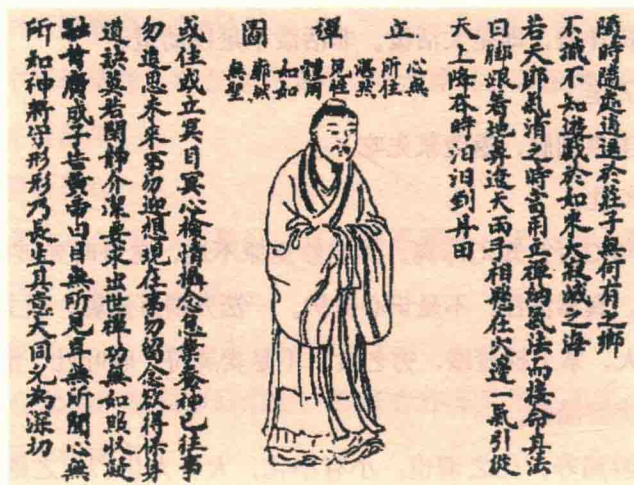 立禪圖
隨時隨處逍遙於莊子無何有之鄉
不識不知遊戲於如來大寂滅之海
若天朗氣清之時當用立禪納氣法而接命其法
曰脚跟着地鼻遼天兩手相懸在穴邊一氣引從
天上降吞時汩汩到丹田
心無
所住
湛然
見性
體用
如如
廓然
無聖
或住或立冥目冥心檢情攝念息業養神已往事
勿追思未來事勿迎想現在事勿留念欲得保身
道訣莫若閒靜介潔要求出世禪功無如照收凝
融昔廣成子告黃帝曰目無所見耳無所聞心無
所知神將守形形乃長生其意大同尤為深切